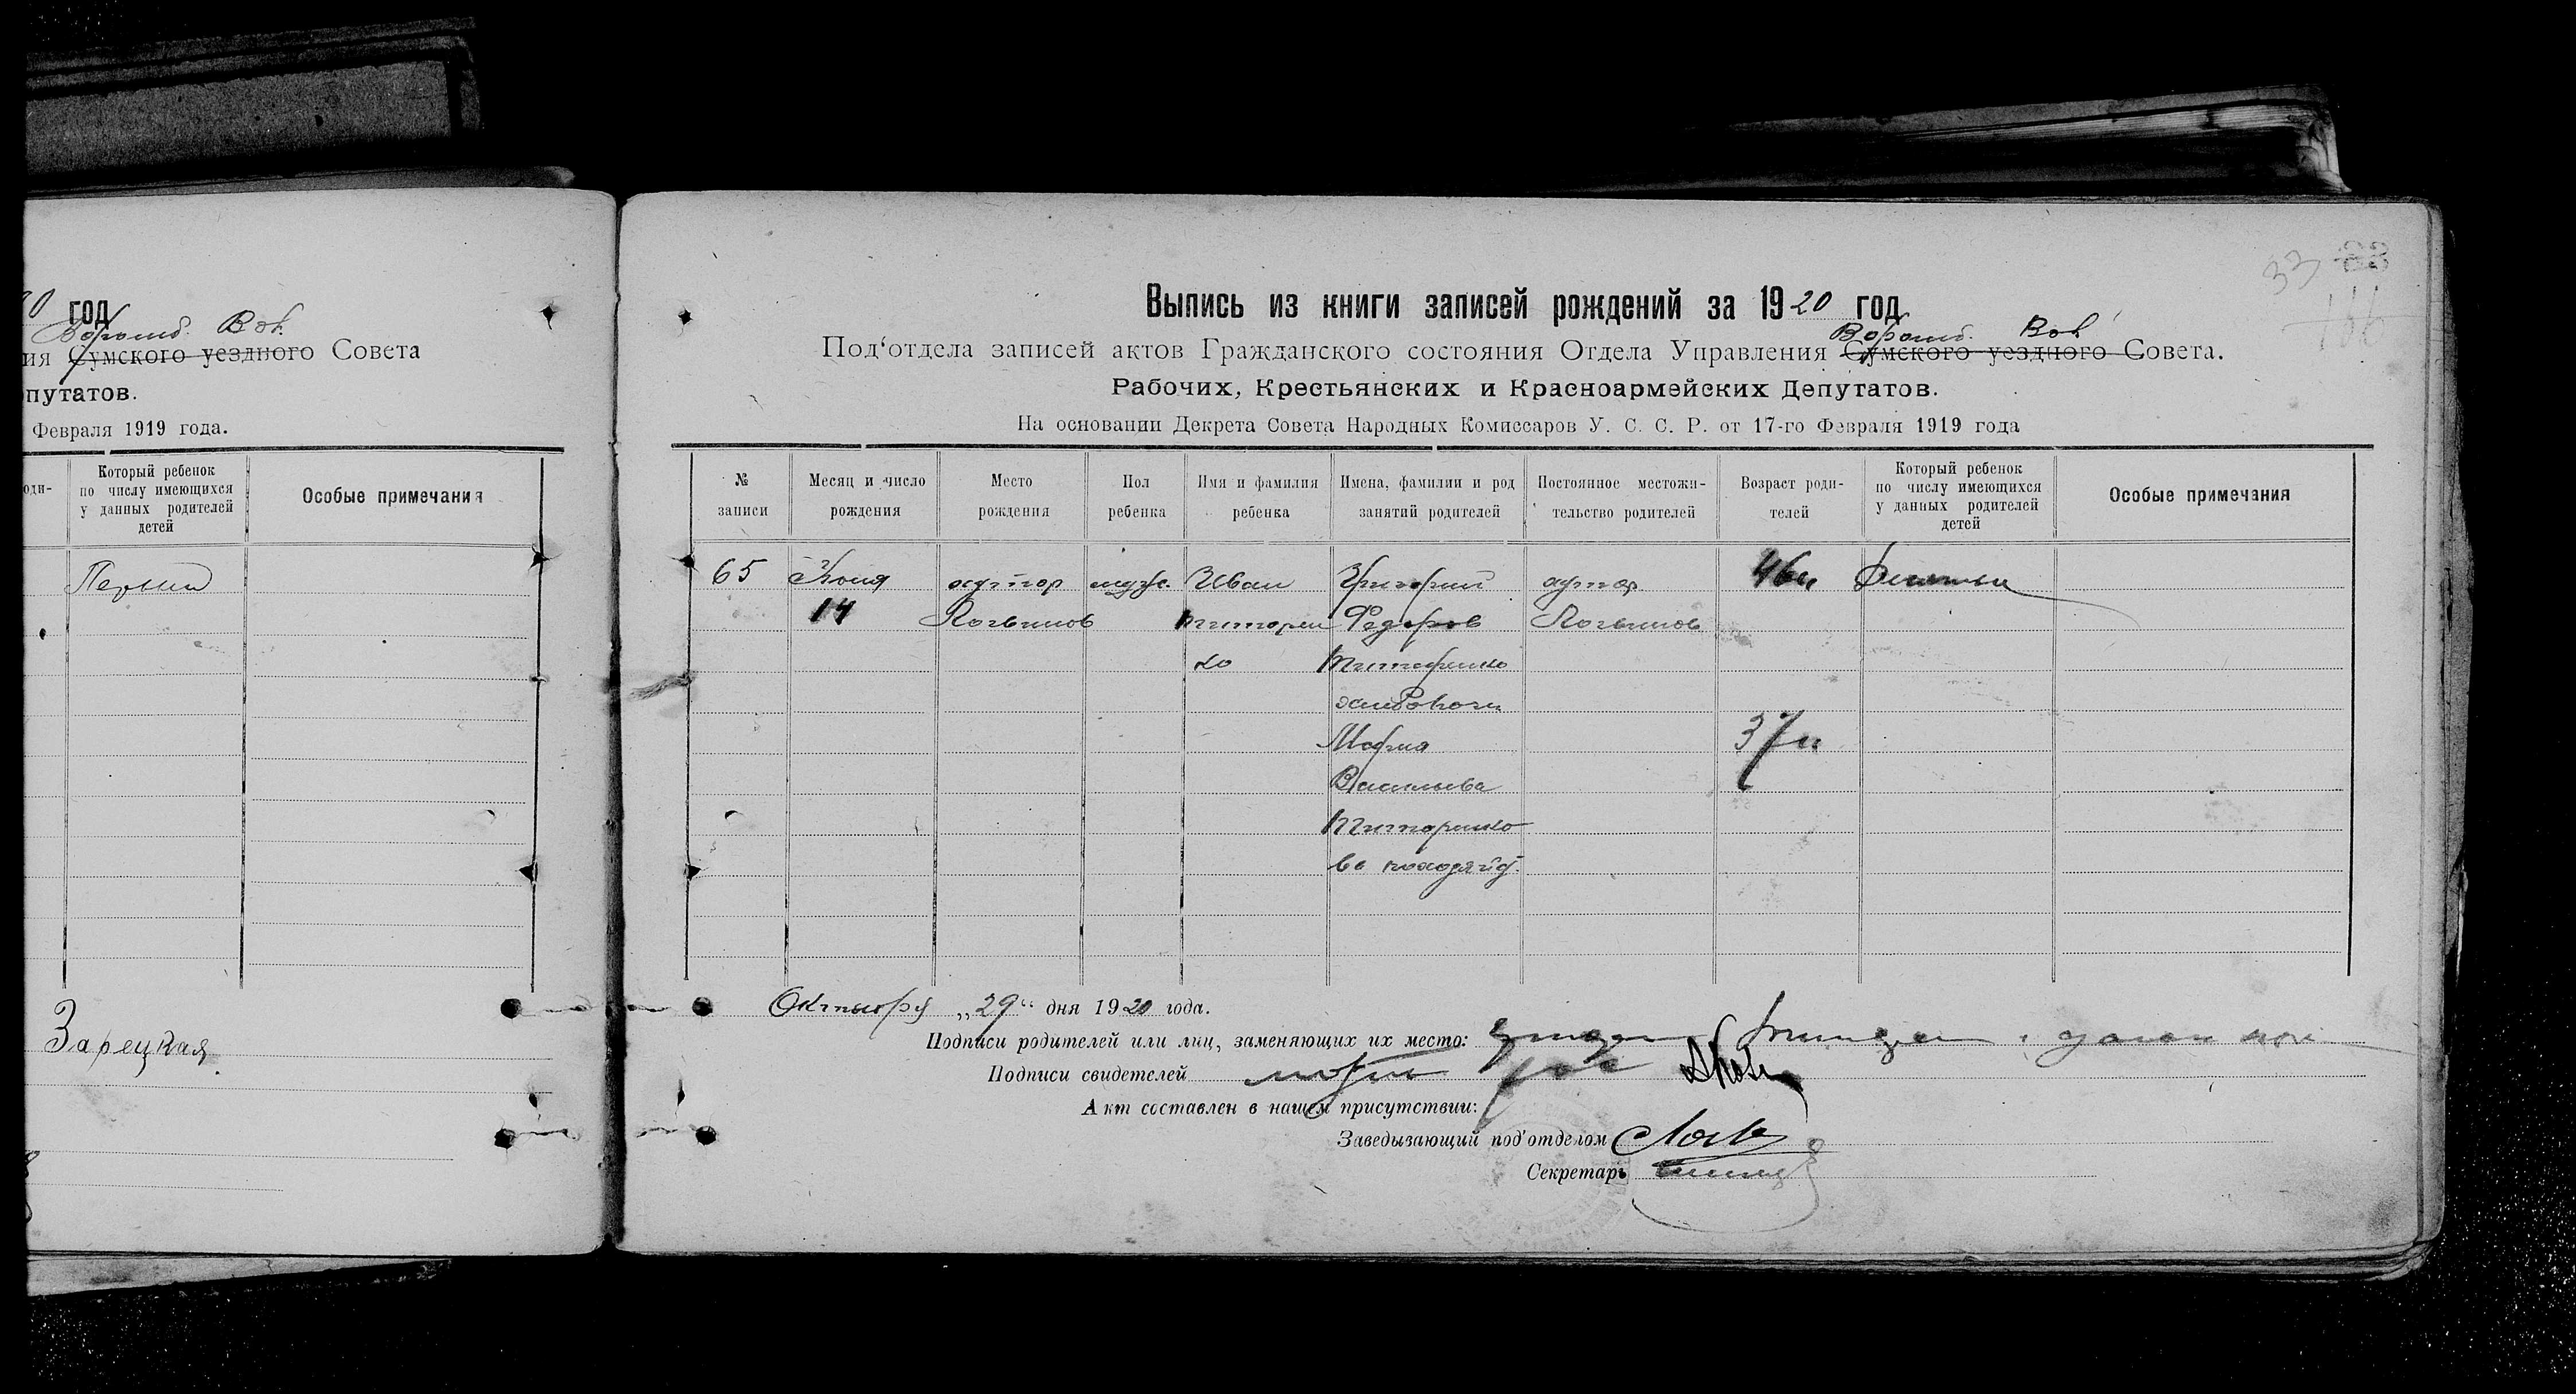 20 год
Ворожб. Вол.
ия Сумского уездного Совета
путатов.
Февраля 1919 года.
оди-
Который ребенок
по числу имеющихся
у данных родителей
детей
Особые примечания
Первый
Зарецкая
33
Выпись из книги записей рождений за 1920 год
Ворожб. Вол.
Под‘отдела записей актов Гражданского состояния Отдела Управления Сумского уездного Совета.
Рабочих, Крестьянских и Красноармейских Депутатов.
На основании Декрета Совета Народных Комиссаров У. С. С. Р. от 17-го Февраля 1919 года
№
записи
Месяц и число
рождения
Место
рождения
Пол
ребенка
Имя и фамилия
ребенка
Имена, фамилии и род
занятий родителей
Постоянное местожи-
тельство родителей
Возраст роди-
телей
Который ребенок
по числу имеющихся
у данных родителей
детей
Особые примечания
65 Июня хутор мужс. Иван Григорий хутор 46
14 Логвинов Титорен Федоров Логвинов
ко Титоренко
Мария 37
Васильева
Титоренко
Октября „29“ дня 1920 года.
Подписи родителей или лиц, заменяющих их место:
Подписи свидетелей
Акт составлен в нашем присутствии:
Заведывающий под‘отделом
Секретарь